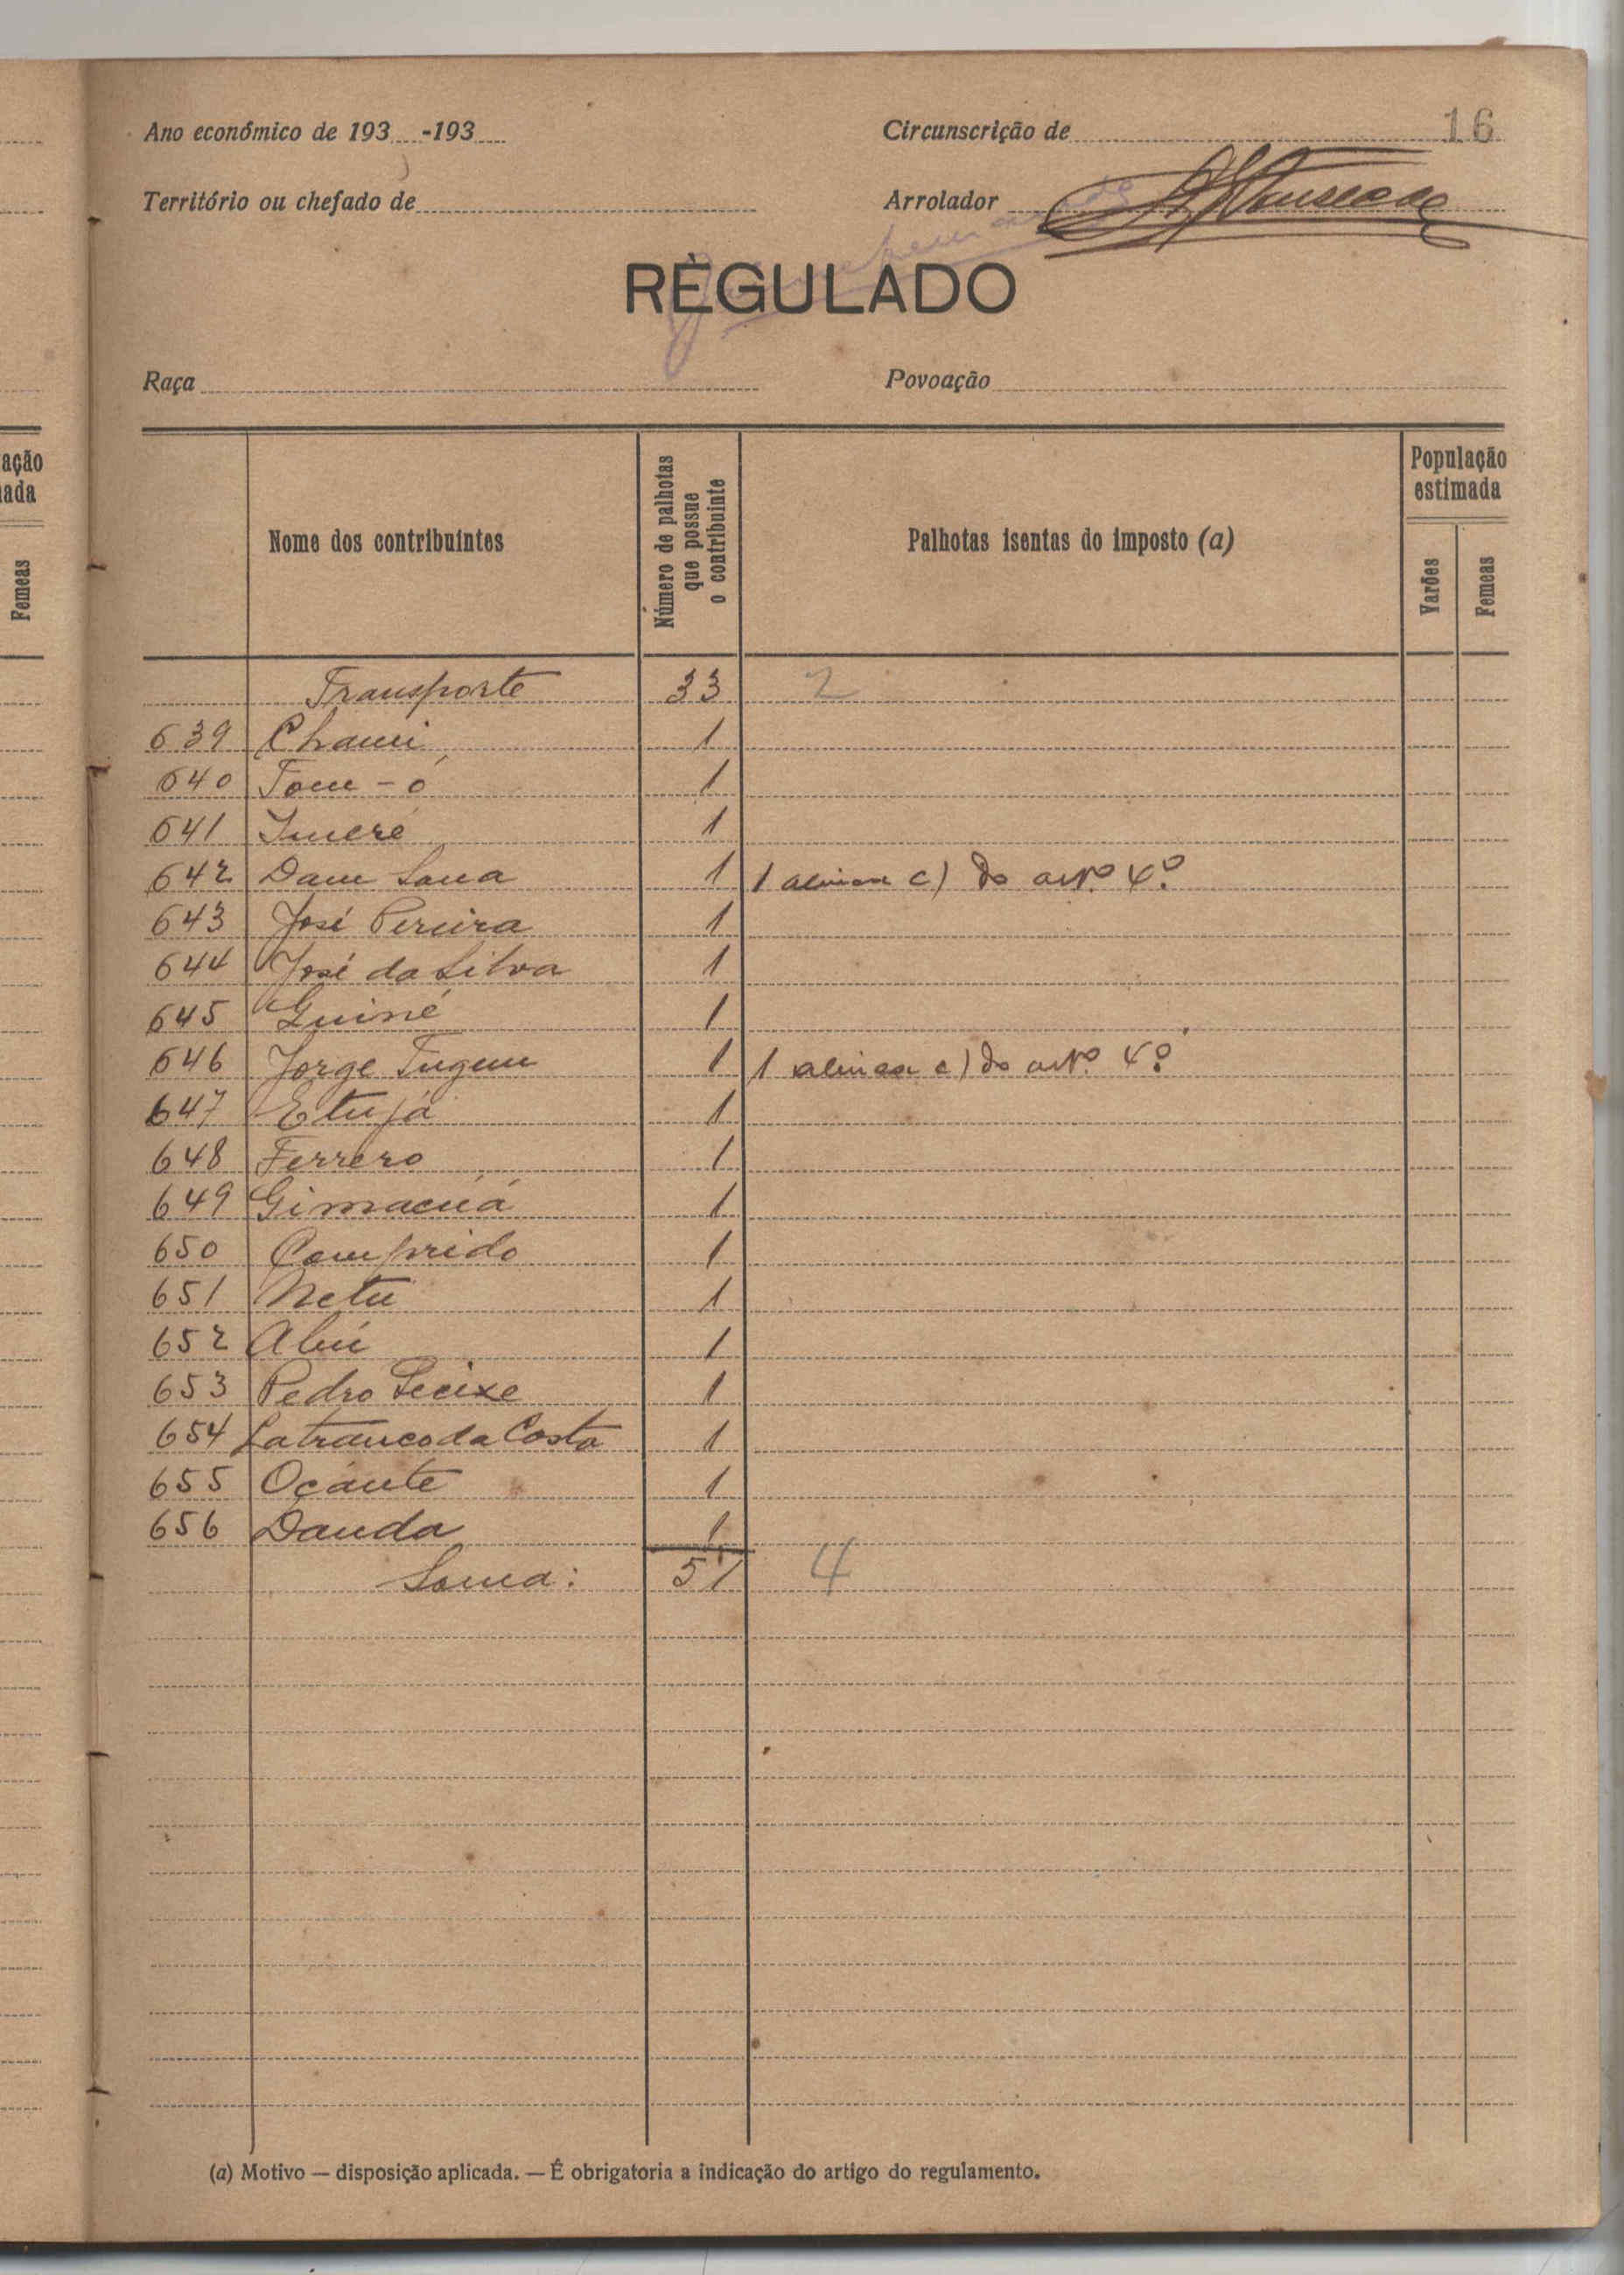 16
Ano económico de 193 -193
Circunscrição de
Território ou chefado de
Arrolador
RÈGULADO
Raça
Povoação
Nome dos contribuintes
Número de palhotas que possue o contribuinte
Palhotas isentas do imposto (a)
População estimada
Varões
Femeas
ação
ada
Femeas
Transporte 33 2
639 Chami 1
640 Tom-ó 1
641 Imeré 1
642 Dam Sana 1 1 alinea c) do artº 4º
643 José Pereira 1
644 José da Silva 1
645 Guiné 1
646 Jorge 1 1 alinea c) do artº 4º
647 Etujá 1
648 Ferrero 1
649 Gimacuá 1
650 Comprido 1
651 Netú 1
652 Abú 1
653 Pedro 1
654 Latranco da Costa 1
655 Ocante 1
656 Dauda 1
Soma: 51 4
(a) Motivo — disposição aplicada. — É obrigatoria a indicação do artigo do regulamento.